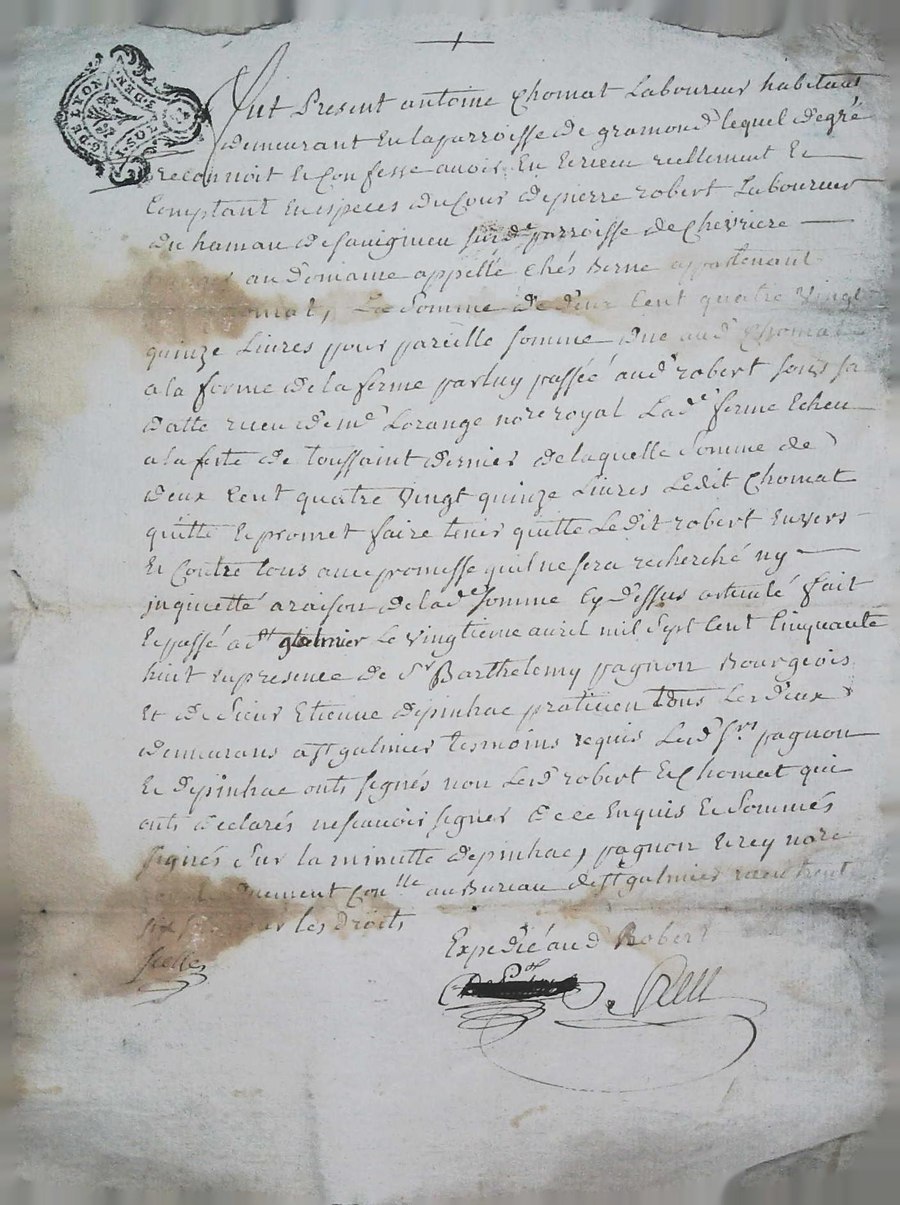 G. DE LYON
1. SOL. 3. DEN.
Fut Present antoine Chomat Laboureur habitant
demeurant En la parroisse de gramond lequel de gré
reconnoit Et Confesse avoir Eu Et receu reellement Et
Comptant En especes du Cour de pierre robert Laboureur
du hamau de savigneu sur de parroisse de Chevriere
au Domaine appellé Chés Berne appartenant
La Somme de deux Cent quatre vingt
quinze Livres pour pareille Somme Due aud Chomat
a la forme de la ferme par luy passée aud robert sous sa
datte receu de me Lorange nore royal Lade ferme Echeu
a la feste de toussaint dernier de laquelle Somme de
deux Cent quatre Vingt quinze Livres Ledit Chomat
quitte Et promet faire tenir quitte Ledit robert Envers
Et Contre tous avec promesse quil ne sera recherché ny
inquietté a raison de lade Somme Cy Dessus articulé fait
Et passé a st galmier Le vingtieme avril mil Sept Cent Cinquante
huit En presence de Sr Barthelemy pagnon Bourgeois
Et de Sieur Etienne depinhac praticien tous Les deux
demeurans a st galmier tesmoins requis Lesd Srs pagnon
Et depinhac onts signés non Lesd robert Et Chomat qui
onts declarés ne scavoir signer de ce Enquis Et Sommés
signés Sur la minutte depinhac, pagnon Et rey nore
Conlle au Bureau de st galmier
six pour les Droits
scelle
Expedié aud Robert